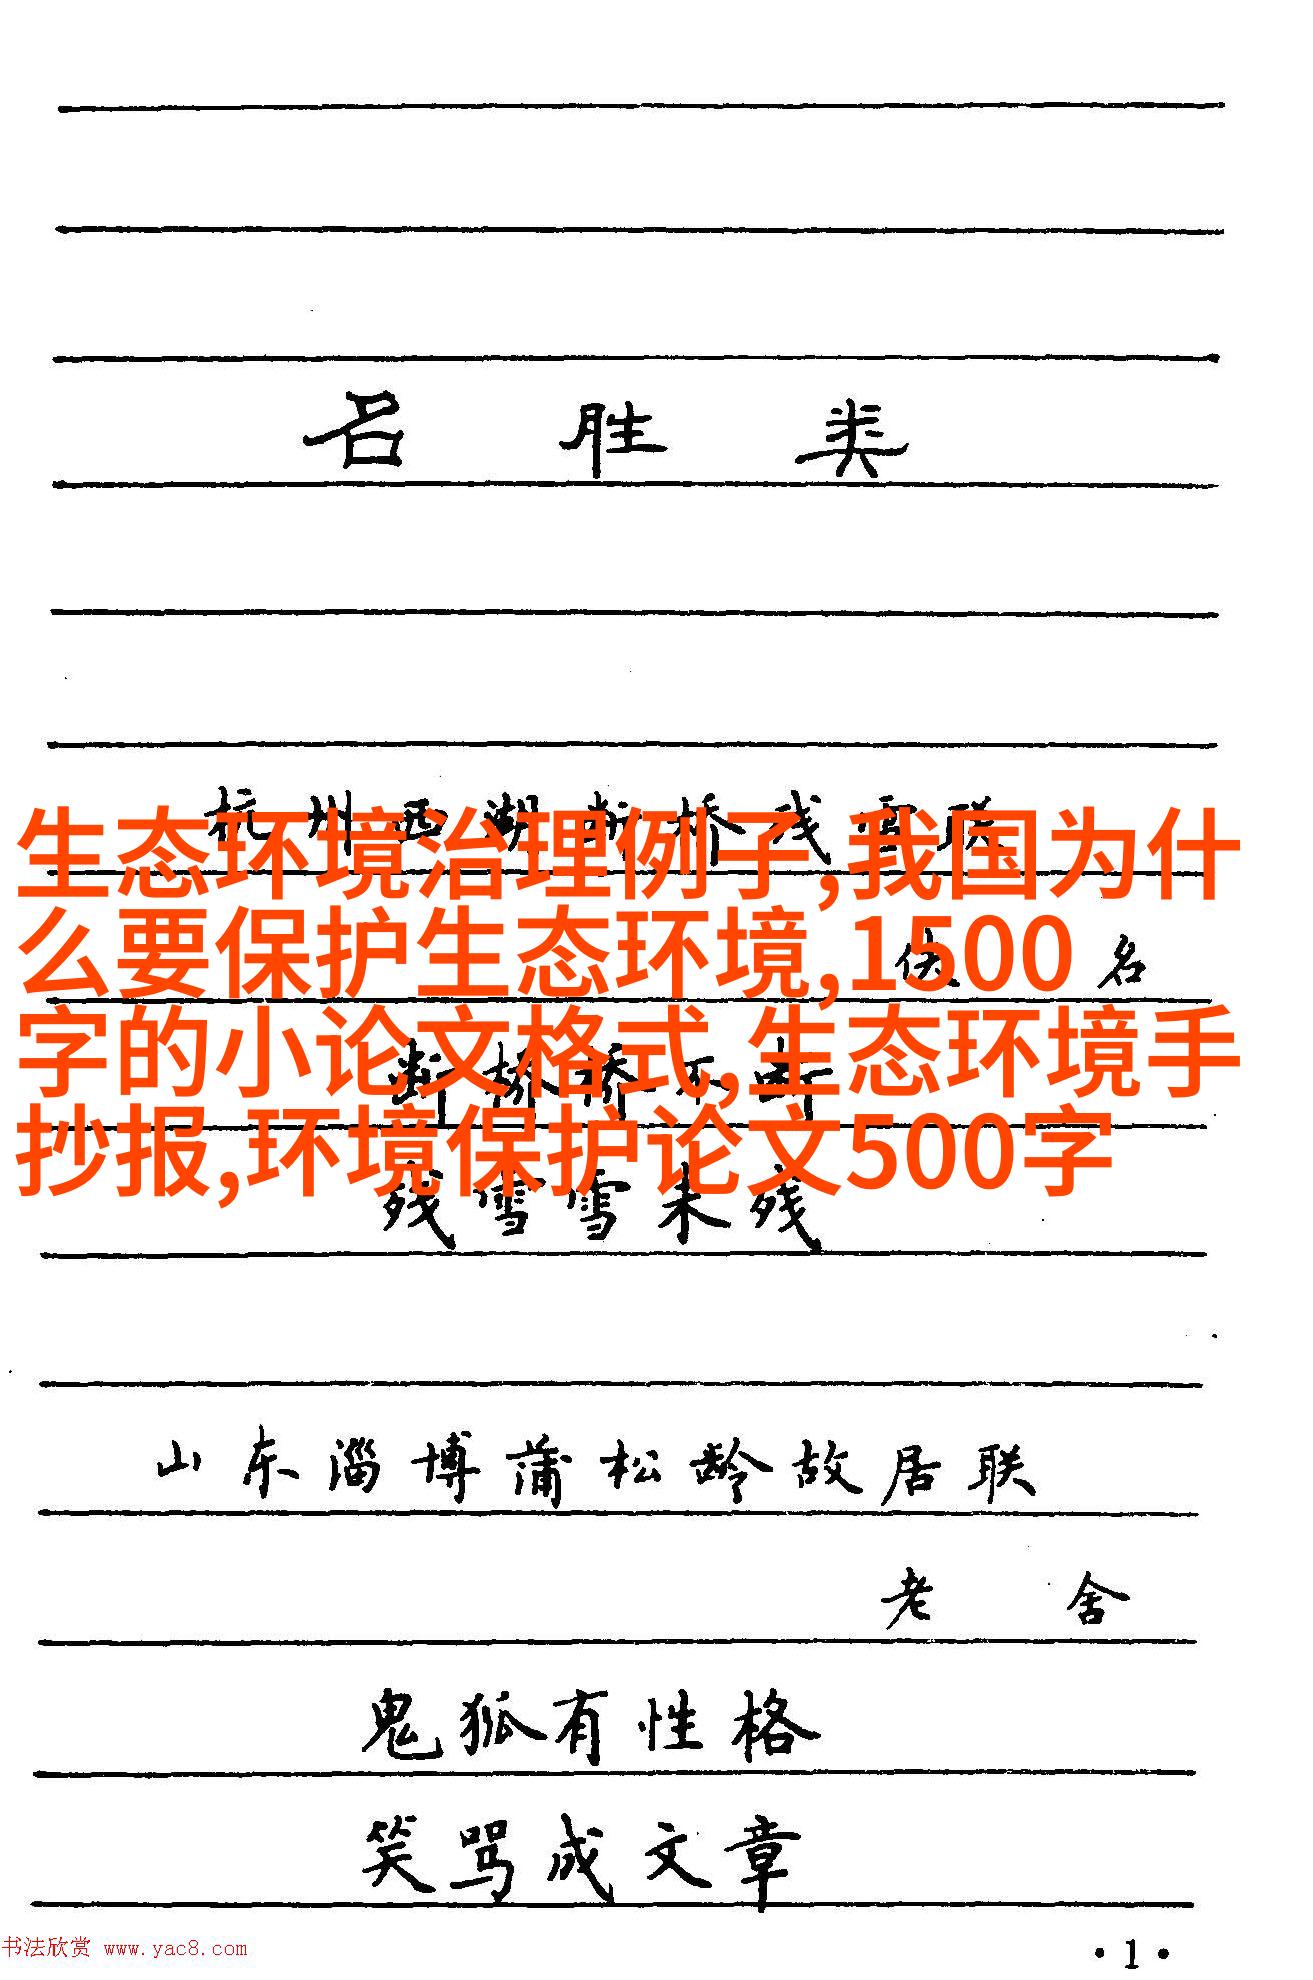 名胜类
杭州西湖断桥残雪联
生态环境治理例子,我国为什
么要保护生态环境,1500
佚名
字的小论文格式,生态环境手
断桥桥不断
抄报,环境保护论文500字
残雪雪未残
山东淄博蒲松龄故居联
老舍
鬼狐有性格
笑骂成文章
书法欣赏 www.yac8.com
·1·